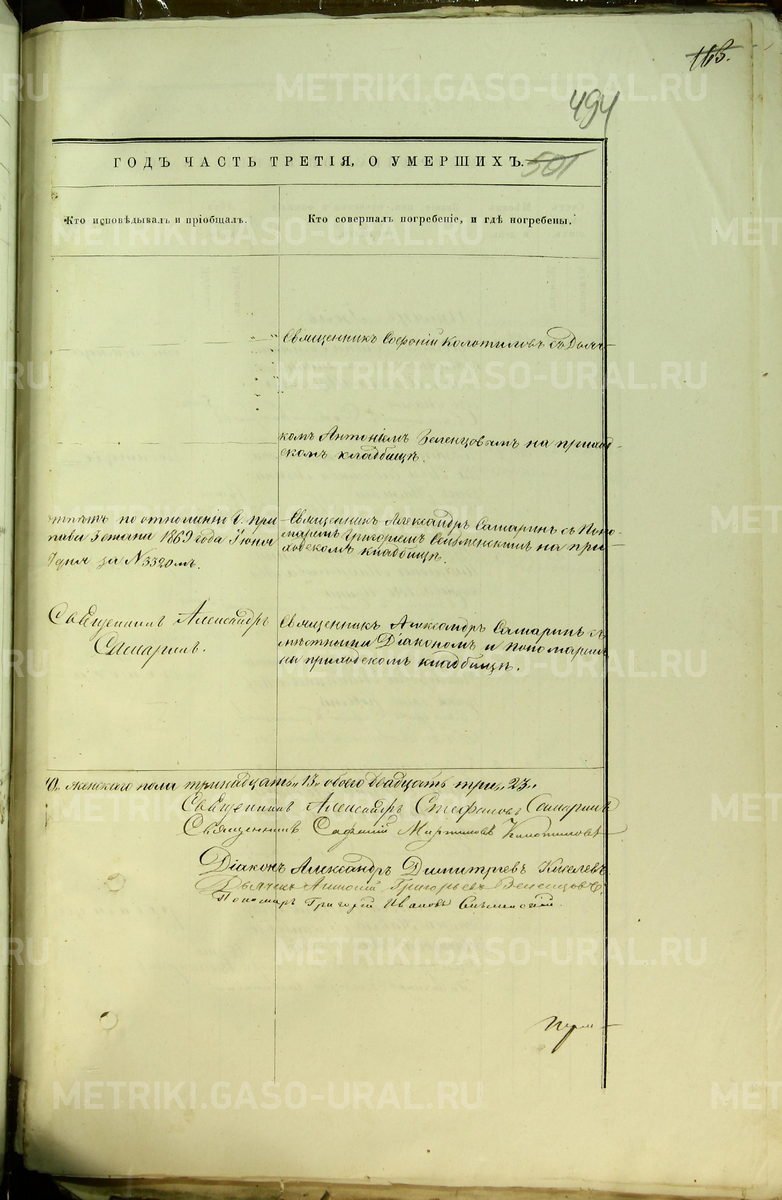 115.
494
ГОДЪ ЧАСТЬ ТРЕТІЯ, О УМЕРШИХЪ.
501
Кто исповѣдывалъ и пріобщалъ.
Кто совершалъ погребеніе, и гдѣ погребены.
Священникъ Софроній Колотиловъ съ Дьяч-
комъ Антоніемъ Зеленцовымъ на приход-
скомъ кладбищѣ.
по отношенію Г. при-
става 5 стана 1869 года Іюня
дня за №3320мъ.
Священникъ Александръ Самаринъ съ Поно-
маремъ Григоріемъ на при-
ходскомъ кладбищѣ.
Священникъ Александръ
Самаринъ.
Священникъ Александръ Самаринъ съ
мѣстными Діакономъ и пономаремъ
на приходскомъ кладбищѣ.
женскаго пола тринадцать „13„ обоего двадцать три „23„
Священникъ Александръ Стефановъ Самаринъ
Священникъ Софроній Мартиновъ Колотиловъ
Діаконъ Александръ Димитріевъ Киселевъ
Дьячекъ Антоній Григорьевъ Зеленцовъ.
Пономарь Григорій Ивановъ
METRIKI.GASO-URAL.RU